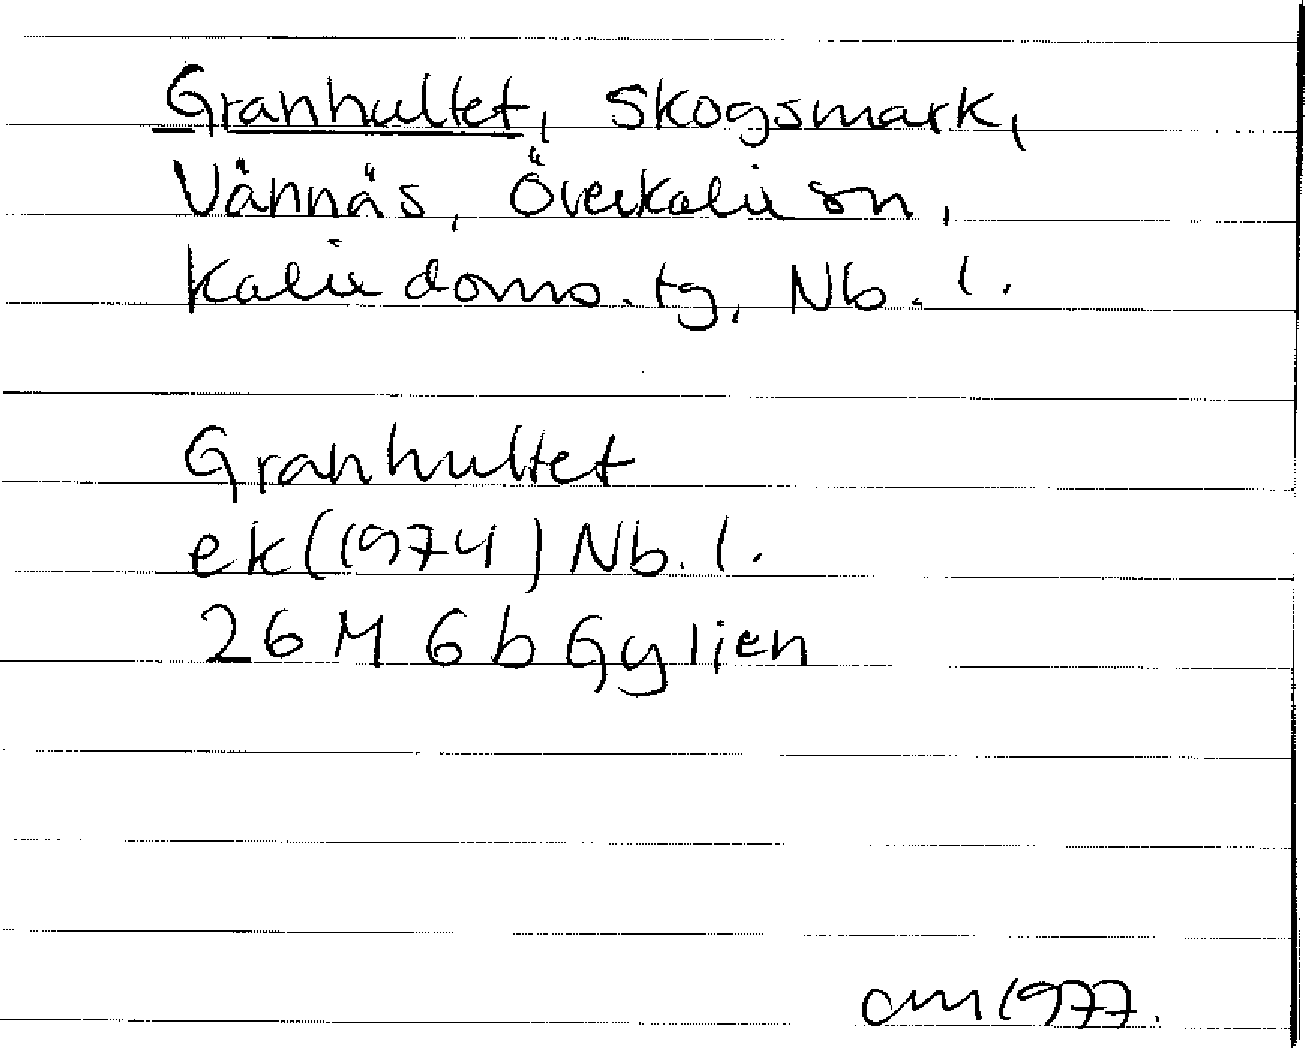 Granhultet, Skogsmark,
Vännäs, Överkalix sn,
Kalix doms.tg, Nb. l.
Granhultet
ek(1974) Nb. l.
26 M 6 b Gyljen
am 1977.